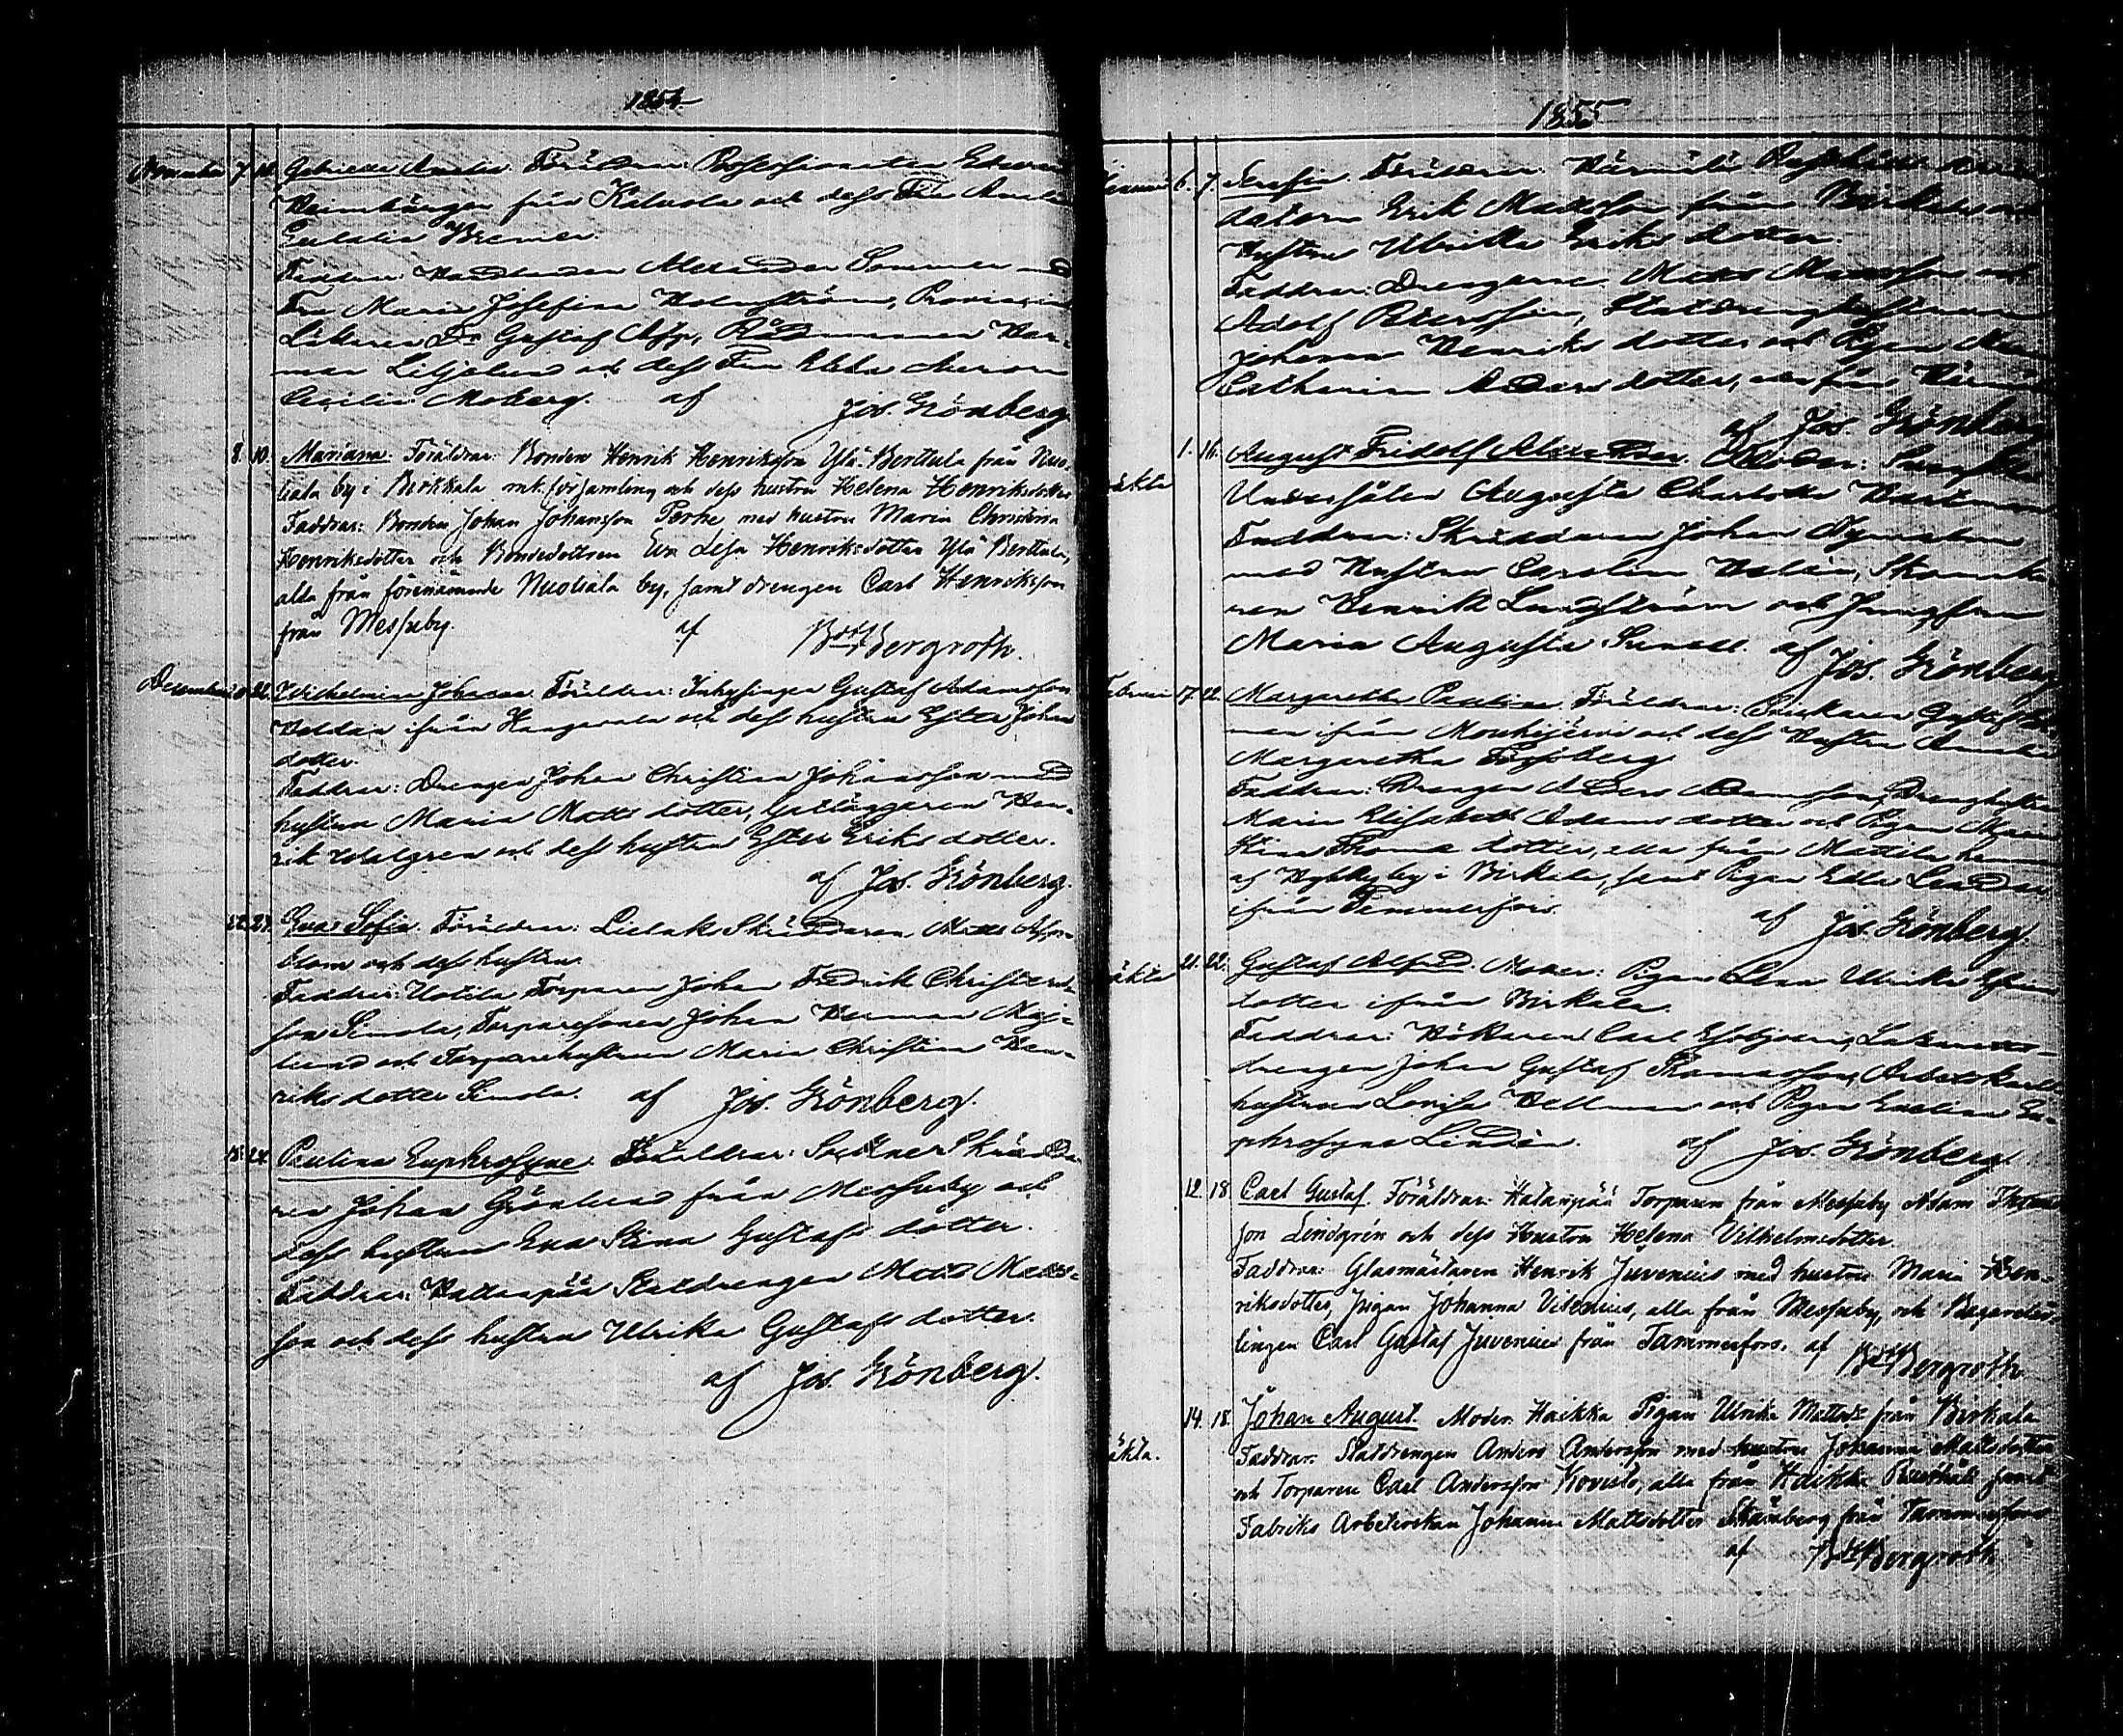 1854
November 7. Gabriella Amalia. Föräldrar: Possessionaten
från Kalkula och dess Fru Amalia
Eulalia Bremer.
Faddrar: Handlanden Alexander Sommer med
Fru Maria Josefina Holmström, Provincial
Läkaren Dr Gustaf Asp, Rådmannen Her-
man Liljelund och dess Fru Ebba Aurora
Cecilia Moberg. af Jos. Grönberg
8. 10. Mariana. Föräldrar: Bonden Henrik Henriksson Ylä-Berttula från Nuo-
liala by i Birkkala mk. församling och dess hustru Helena Henriksdotter
Faddrar: Bonden Johan Johansson Perhe med hustru Maria Christina
Henriksdotter och Bondedottren Eva Lesa Henriksdotter Ylä Berttula,
alla från förenämnde Nuoliala by, samt drengen Carl Henriksson
från Messuby. af Bergroth.
December Wilhelmina Johanna. Föräldrar: Inhysingen Gustaf Adamsson
ifrån och dess hustru Ester Johans
dotter.
Faddrar: Drengen Johan Christian Johansson med
hustrun Maria Matts dotter, Hen-
rik Walgren och dess hustru Ester Eriks dotter.
af Jos. Grönberg.
22. 27. Eva Sofia. Föräldrar: Lielaks Skräddaren Matts Asp-
blom och dess hustru.
Faddrar: Uotila Torparen Johan Fredrik Christers-
son Simola, Torparesonen Johan Herman
och Torparehustrun Maria Christina Hen-
riks dotter Simola. af Jos. Grönberg.
18. 24. Paulina Euphrosyne. Föräldrar: Sockne Skrädda-
ren Johan Grönlund från Messuby och
dess hustru Eva Stina Gustafs dotter.
Faddrar: Hatanpää Statdrengen Matts Matts-
son och dess hustru Ulrika Gustafs dotter.
af Jos. Grönberg.
1855
Januari 6. 7. Serafia. Föräldrar: Härmälä Rusthålls
Erik Mattsson från Birkala och
Hustru Ulrika Eriks dotter.
Faddrar: Drengarne Matts Mattsson och
Adolf Petersson, Statdrengshustrun
Johanna Henriks dotter och Pigan
Catharina Anders dotter, alla från Härmä
af Jos. Grönberg
1. 16. August Fridolf Alexander. Moder: Svenska
Undersåten Augusta Charlotta Hartman
äkta
Faddrar: Skräddaren Johan Nyman
med Hustru Carolina Skomaka-
ren Henrik Lundström och Jungfrun
Maria Augusta Sunell. af Jos. Grönberg
Februari 17. 22. Margaretha Paulina. Föräldrar: Gustaf
man ifrån Mouhijärvi och dess Hustru Amalia
Margaretha
Faddrar: Drengen Anders Adamsson, Drenghustrun
Maria Elisabeth Adams dotter och Pigan Maria
Stina Thomas dotter, alla från Mattila hemman
af by i Birkala, samt Pigan Edla
ifrån Tammerfors. af Jos. Grönberg.
21. 22. Gustaf Alfred. Moder: Pigan Lena Ulrika
äkta dotter ifrån Birkala.
Faddrar: Hökaren Carl
drengen Johan Gustaf Thomasson, Arbetskarls
hustrun Lovisa Hellman och Pigan Evelina Eu-
phrosyne Lindén. af Jos. Grönberg.
12. 18. Carl Gustaf. Föräldrar: Hatanpää Torparen från Messuby Adam Thomas
son Lindgrén och dess Hustru Helena Vilhelmsdotter.
Faddrar: Glasmästaren Henrik Juvenius med hustru Maria Hen-
riksdotter, pigan Johanna Vitenius, alla från Messuby, och Bagarelär-
lingen Carl Gustaf Juvenius från Tammerfors. af Bergroth.
14. 18. Johan August. Moder: Haikka Pigan Ulrika Mattsdr från Birkala
äkta. Faddrar: Statdrengen Anders Andersson med hustru Johanna Mattsdotter
och Torparen Carl Andersson Kovisto, alla från Haikka Rusthåll samt
Fabriks Arbeterskan Johanna Mattsdotter Skånberg från Tammerfors
af Bergroth